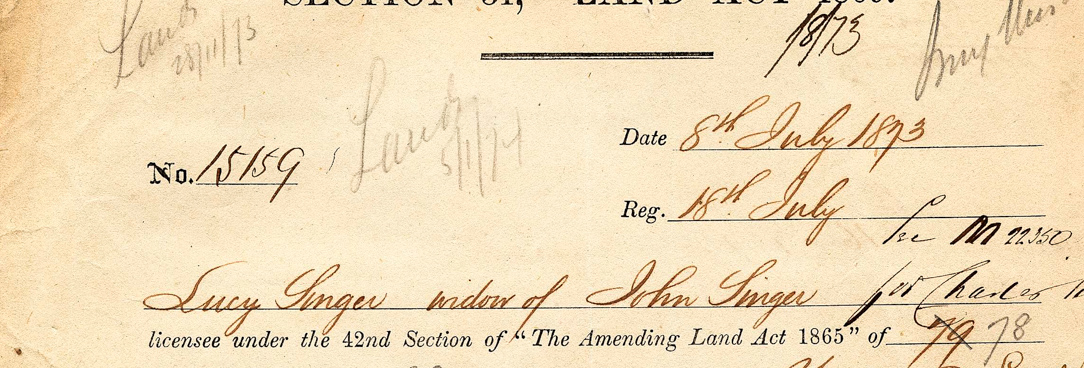 SECTION 31, LAND ACT
18/73
Lands
28/11/73
Lands
5/11/74
Date 8th July 1873
No. 15159
Reg. 18th July
M 22350
Lucy Singer widow of John Singer for Charles
licensee under the 42nd Section of "The Amending Land Act 1865" of 79 78